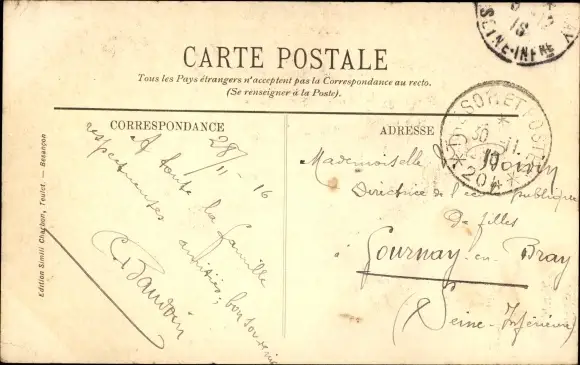 CARTE POSTALE
Tous les Pays étrangers n'acceptent pas la Correspondance au recto.
(Se renseigner à la Poste).
CORRESPONDANCE
28/11-16
A toute la famille
respectueuses amitiés; bon souvenir
C. Baudoin
ADRESSE
Mademoiselle
Directrice de l'école publique
De filles
à Gournay-en-Bray
(Seine-Inférieure)
SEINE-INFRE
TRESOR ET POSTES
30 11
204
Edition Simili Charbon, Teulet. — Besançon